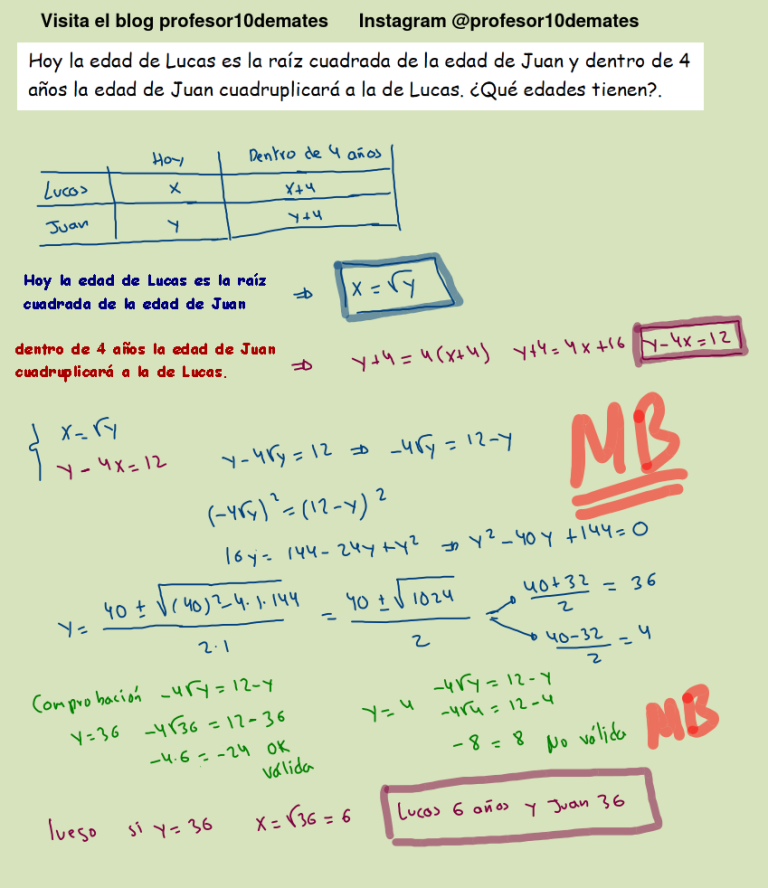 Visita el blog profesor10demates Instagram @profesor10demates
Hoy la edad de Lucas es la raíz cuadrada de la edad de Juan y dentro de 4
años la edad de Juan cuadruplicará a la de Lucas. ¿Qué edades tienen?.
Hoy Dentro de 4 años
Lucas x x+4
Juan y y+4
Hoy la edad de Lucas es la raíz
cuadrada de la edad de Juan
⇒ x = √y
dentro de 4 años la edad de Juan
cuadruplicará a la de Lucas.
⇒ y+4 = 4(x+4) y+4 = 4x+16 y-4x=12
{ x=√y
y-4x=12
y-4√y = 12 ⇒ -4√y = 12-y
(-4√y)² = (12-y)²
16y = 144-24y+y² ⇒ y²-40y+144=0
MB
y = 40 ± √(40)²-4·1·144 / 2·1 = 40 ± √1024 / 2
40+32 / 2 = 36
40-32 / 2 = 4
Comprobación -4√y = 12-y
y=36 -4√36 = 12-36
-4·6 = -24 OK
válida
y=4 -4√y = 12-y
-4√4 = 12-4
-8 = 8 No válida
MB
luego si y=36 x=√36=6 Lucas 6 años y Juan 36